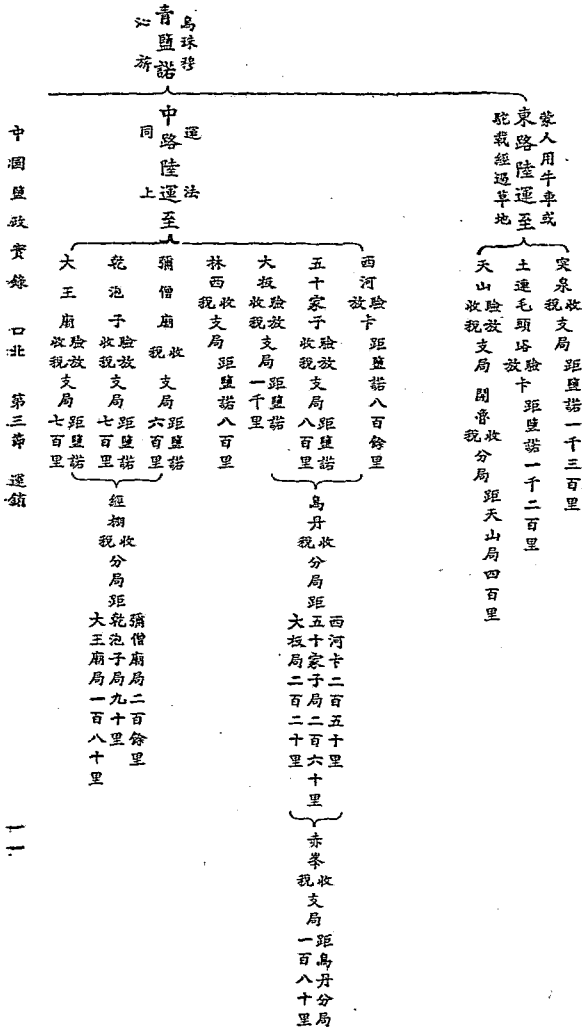 烏珠穆沁旂青鹽諾
東路陸運至 蒙人用牛車或駝載經過草地
突泉收稅支局 距鹽諾一千三百里
土連毛頭塔驗放卡 距鹽諾一千二百里
天山驗放收稅支局 開魯收稅分局 距天山局四百里
中路陸運至 運法同上
西河驗放卡 距鹽諾八百餘里
五十家子驗放收稅支局 距鹽諾八百里
大板驗放收稅支局 距鹽諾一千里
烏丹收稅分局距 西河卡二百五十里 五十家子局二百六十里 大板局二百二十里
赤峯收稅支局 距烏丹分局一百八十里
林西收稅支局 距鹽諾八百里
彌僧廟收稅支局 距鹽諾六百里
乾泡子驗放收稅支局 距鹽諾七百里
大王廟驗放收稅支局 距鹽諾七百里
經棚收稅分局距 彌僧廟局二百餘里 乾泡子局九十里 大王廟局一百八十里
中國鹽政實錄 口北 第三節 運銷 一一